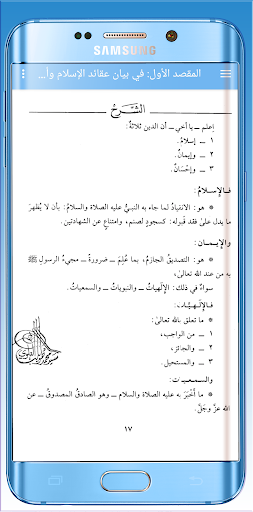 SAMSUNG
المقصد الأول: في بيان عقائد الإسلام وأ...
الشرح
إعلم ــ يا أخي ــ أن الدين ثلاثة:
١ ــ إسلام.
٢ ــ وإيمان.
٣ ــ وإحسان.
فالإسلام:
* هو: الانقياد لما جاء به النبي عليه الصلاة والسلام: بأن لا يظهر
ما يدل على فقد قبوله: كسجود لصنم، وامتناع عن الشهادتين.
والإيمان:
* هو: التصديق الجازم: بما علم ــ ضرورة ــ مجيء الرسول ﷺ
به من عند الله تعالى.
سواء في ذلك: الإلهيات ــ والنبويات ــ والسمعيات.
فالإلهيات:
* ما تعلق بالله تعالى:
١ ــ من الواجب،
٢ ــ والجائز،
٣ ــ والمستحيل.
والسمعيات:
* ما أخبر به عليه الصلاة والسلام ــ وهو الصادق المصدوق ــ عن
الله عز وجل.
١٧